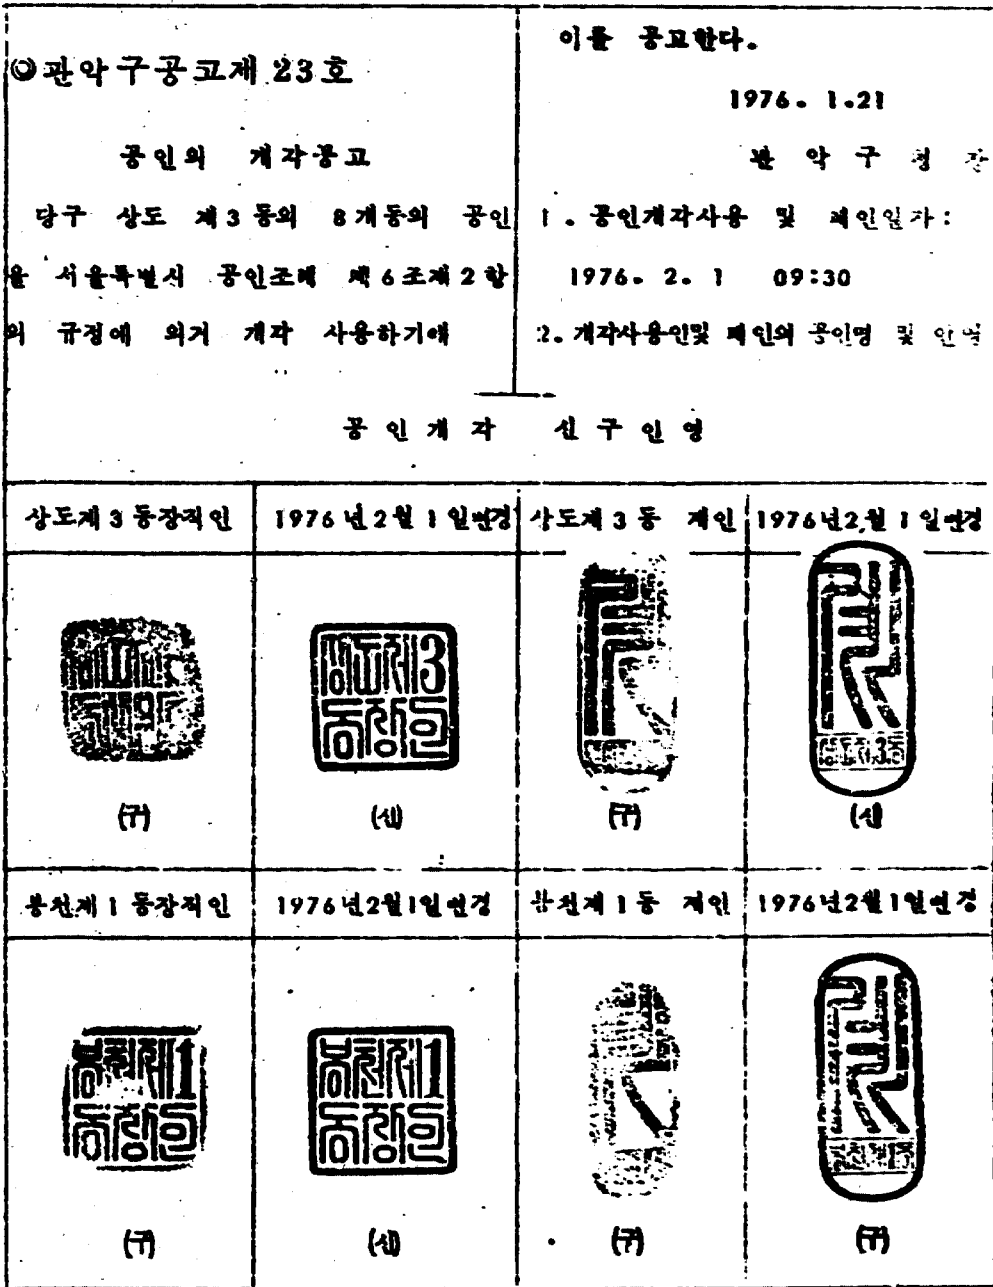 ◎관악구공고제 23호
공인의 개각공고
당구 상도 제3동외 8개동의 공인
을 서울특별시 공인조례 제6조제2항
의 규정에 의거 개각 사용하기에
이를 공고한다.
1976. 1.21
관악구청장
1. 공인개각사용 및 폐인일자:
1976. 2. 1 09:30
2. 개각사용인및 폐인의 공인명 및 인영
공인개각 신구인영
상도제3동장직인 1976년2월1일변경 상도제3동 계인 1976년2월1일변경
상도제3
동장인
(구) (신) (구) (신)
봉천제1동장직인 1976년2월1일변경 봉천제1동 계인 1976년2월1일변경
봉천제1 봉천제1
동장인 동장인
(구) (신) (구) (구)